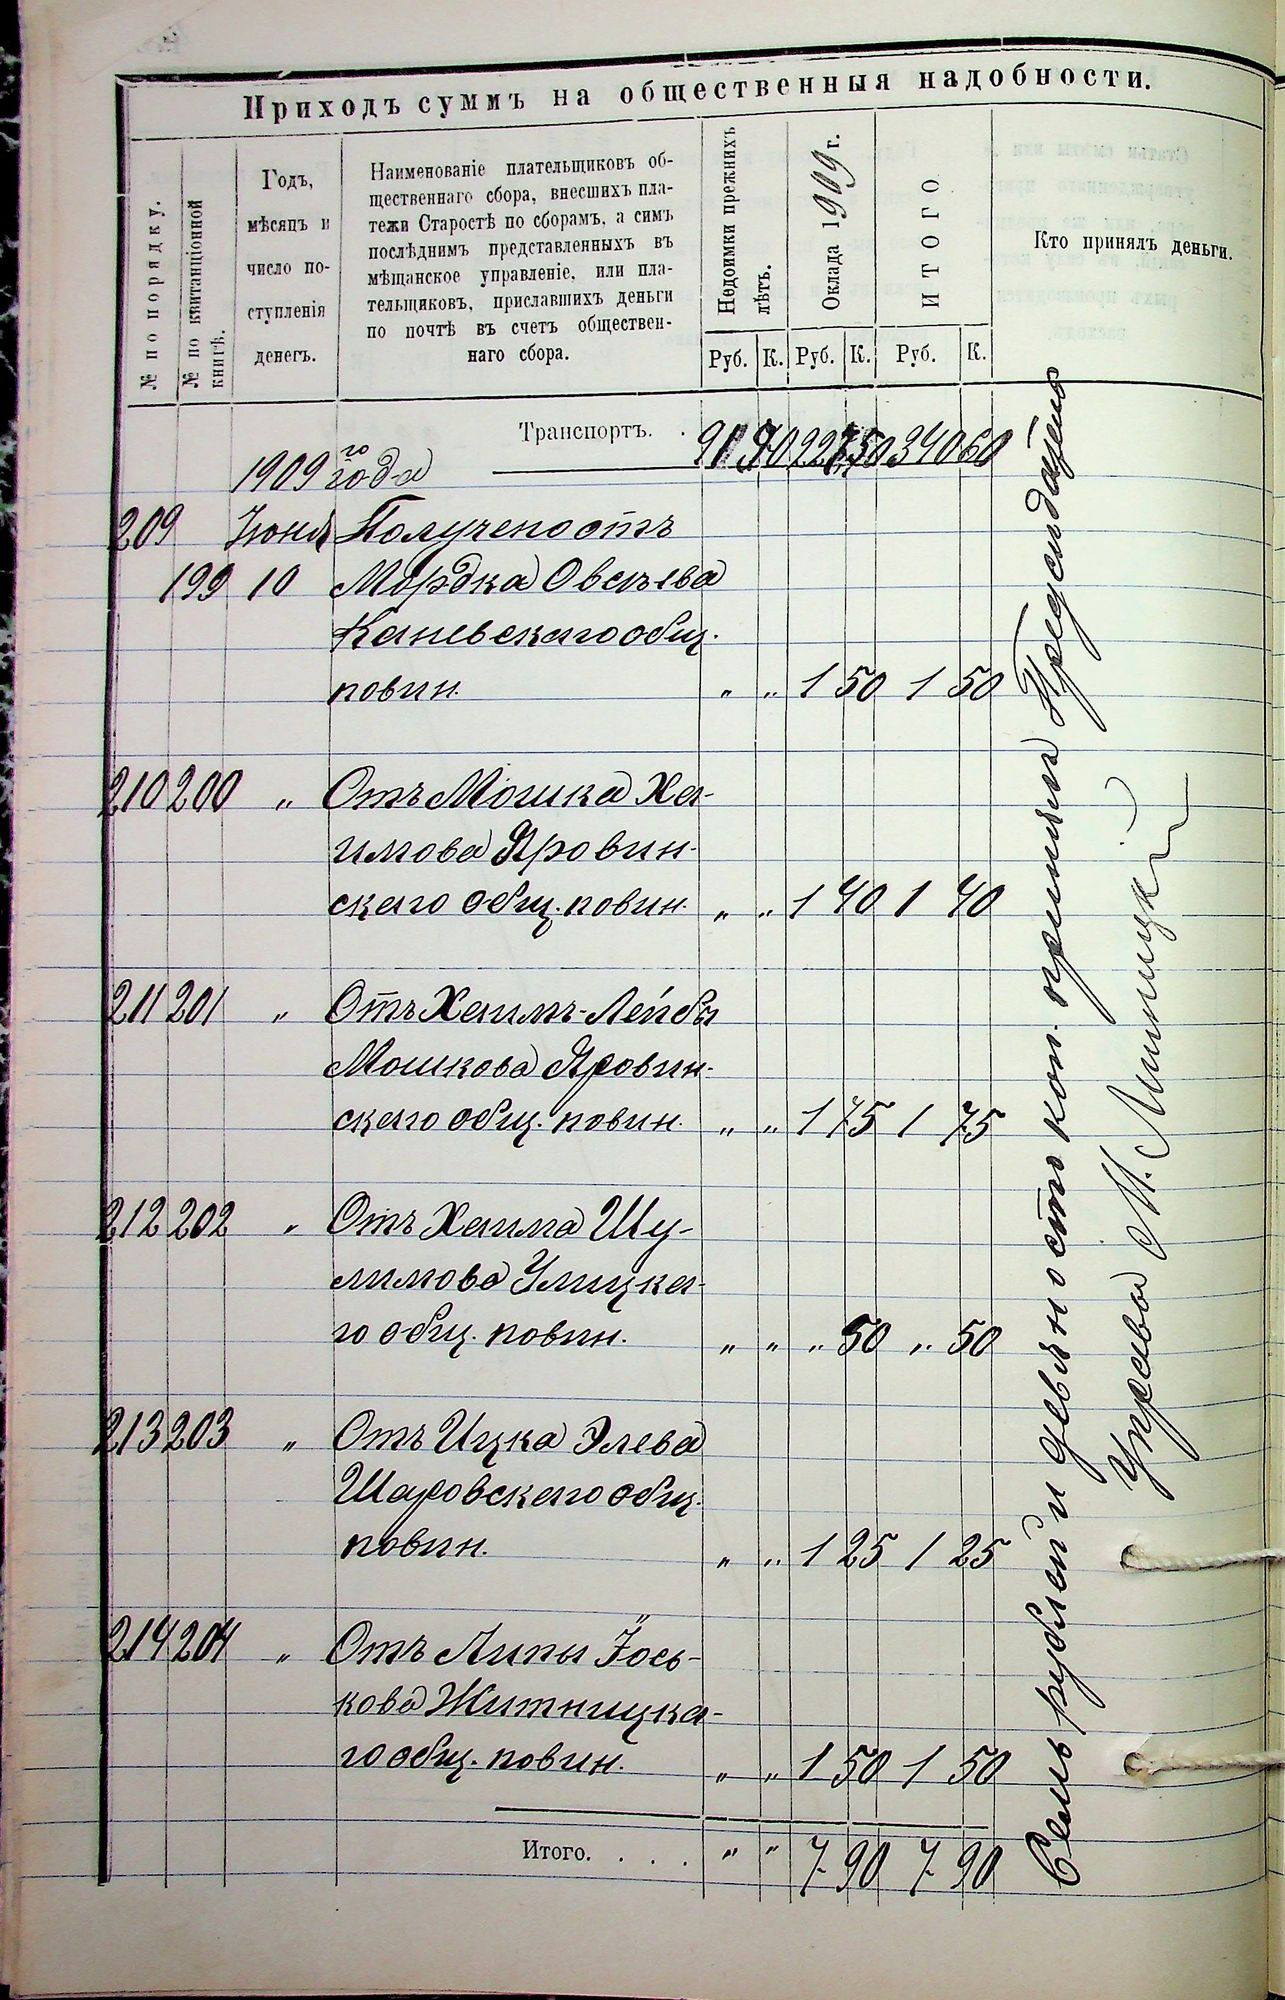 Приходъ суммъ на общественныя надобности.
№ по порядку.
№ по квитанціонной
книгѣ.
Годъ,
мѣсяцъ и
число по-
ступленія
денегъ.
Наименованіе плательщиковъ об-
щественнаго сбора, внесшихъ пла-
тежи Старостѣ по сборамъ, а симъ
послѣднимъ представленныхъ въ
мѣщанское управленіе, или пла-
тельщиковъ, приславшихъ деньги
по почтѣ въ счетъ обществен-
наго сбора.
Недоимки прежнихъ
лѣтъ.
Оклада 1909 г.
ИТОГО
Кто принялъ деньги.
Руб. К. Руб. К. Руб. К.
Транспортъ. . 340 60
1909 го года
209 Июня Получено отъ
199 10 Мордка Овсѣева
Каневскаго общ.
повин. „ „ 1 50 1 50
210 200 „ Отъ Мошка Ха-
имова Яровин-
скаго общ. повин. „ „ 1 40 1 40
211 201 „ Отъ Хаимъ-Лейбы
Мошкова Яровин-
скаго общ. повин. „ „ 1 75 1 75
212 202 „ Отъ Хаима Шу-
лимова Улицка-
го общ. повин. „ „ „ 50 „ 50
213 203 „ Отъ Ицка Элева
Шаровскаго общ.
повин. „ „ 1 25 1 25
214 204 „ Отъ Липы Іось-
кова Житницка-
го общ. повин. „ „ 1 50 1 50
Итого. . . . „ „ 7 90 7 90
Семь рублей и девяносто коп. принял Председатель
Управы М.